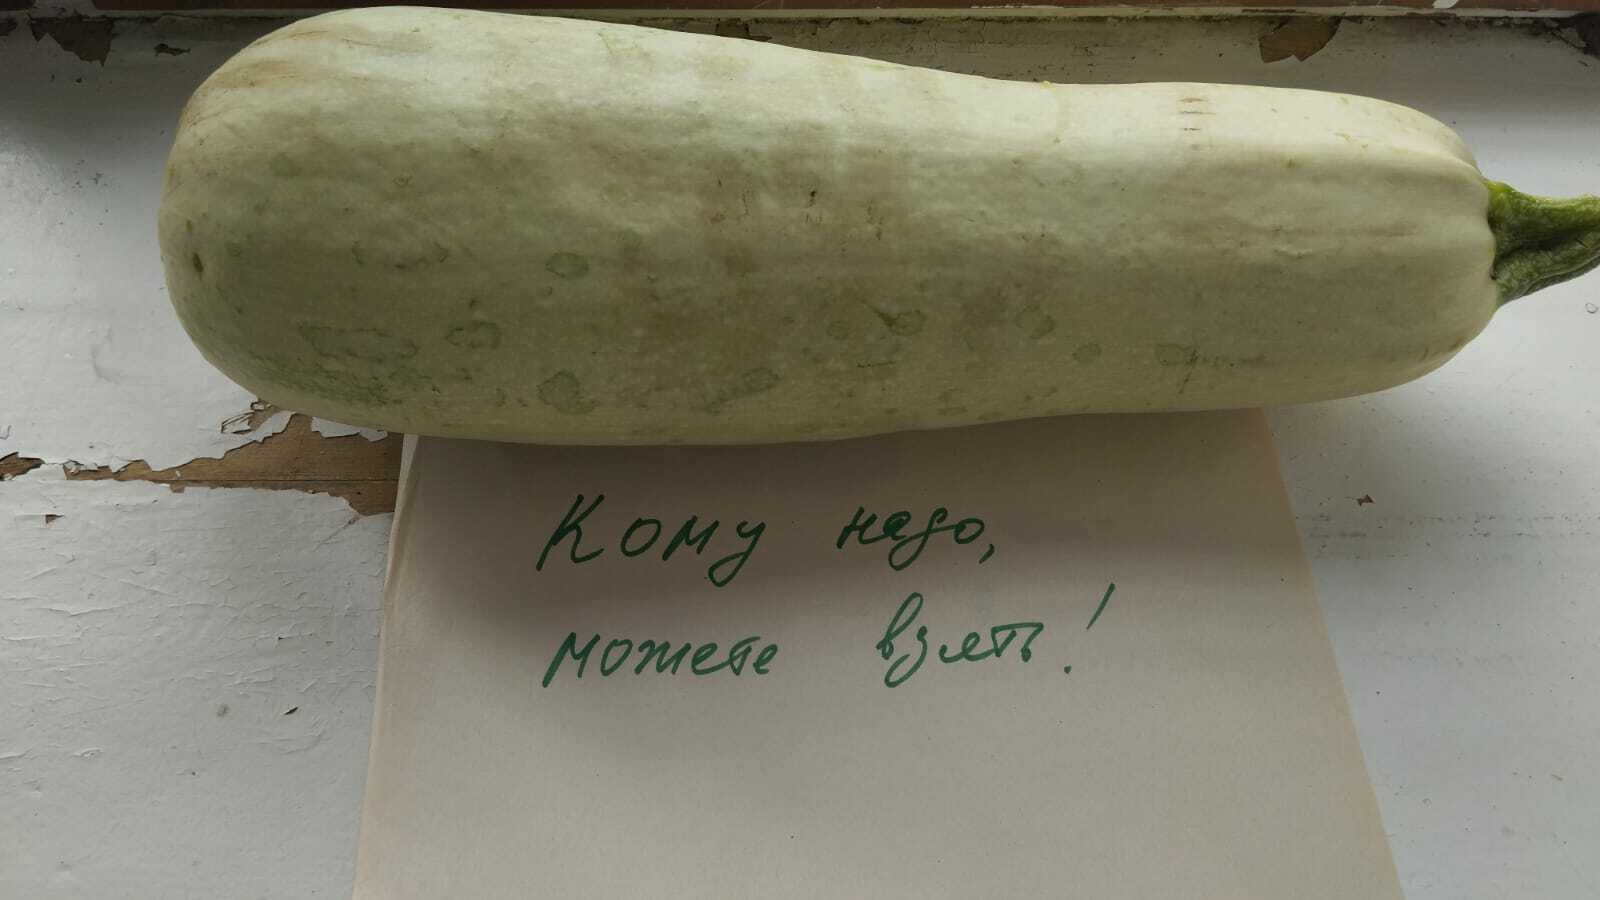 Кому надо,
можете взять!